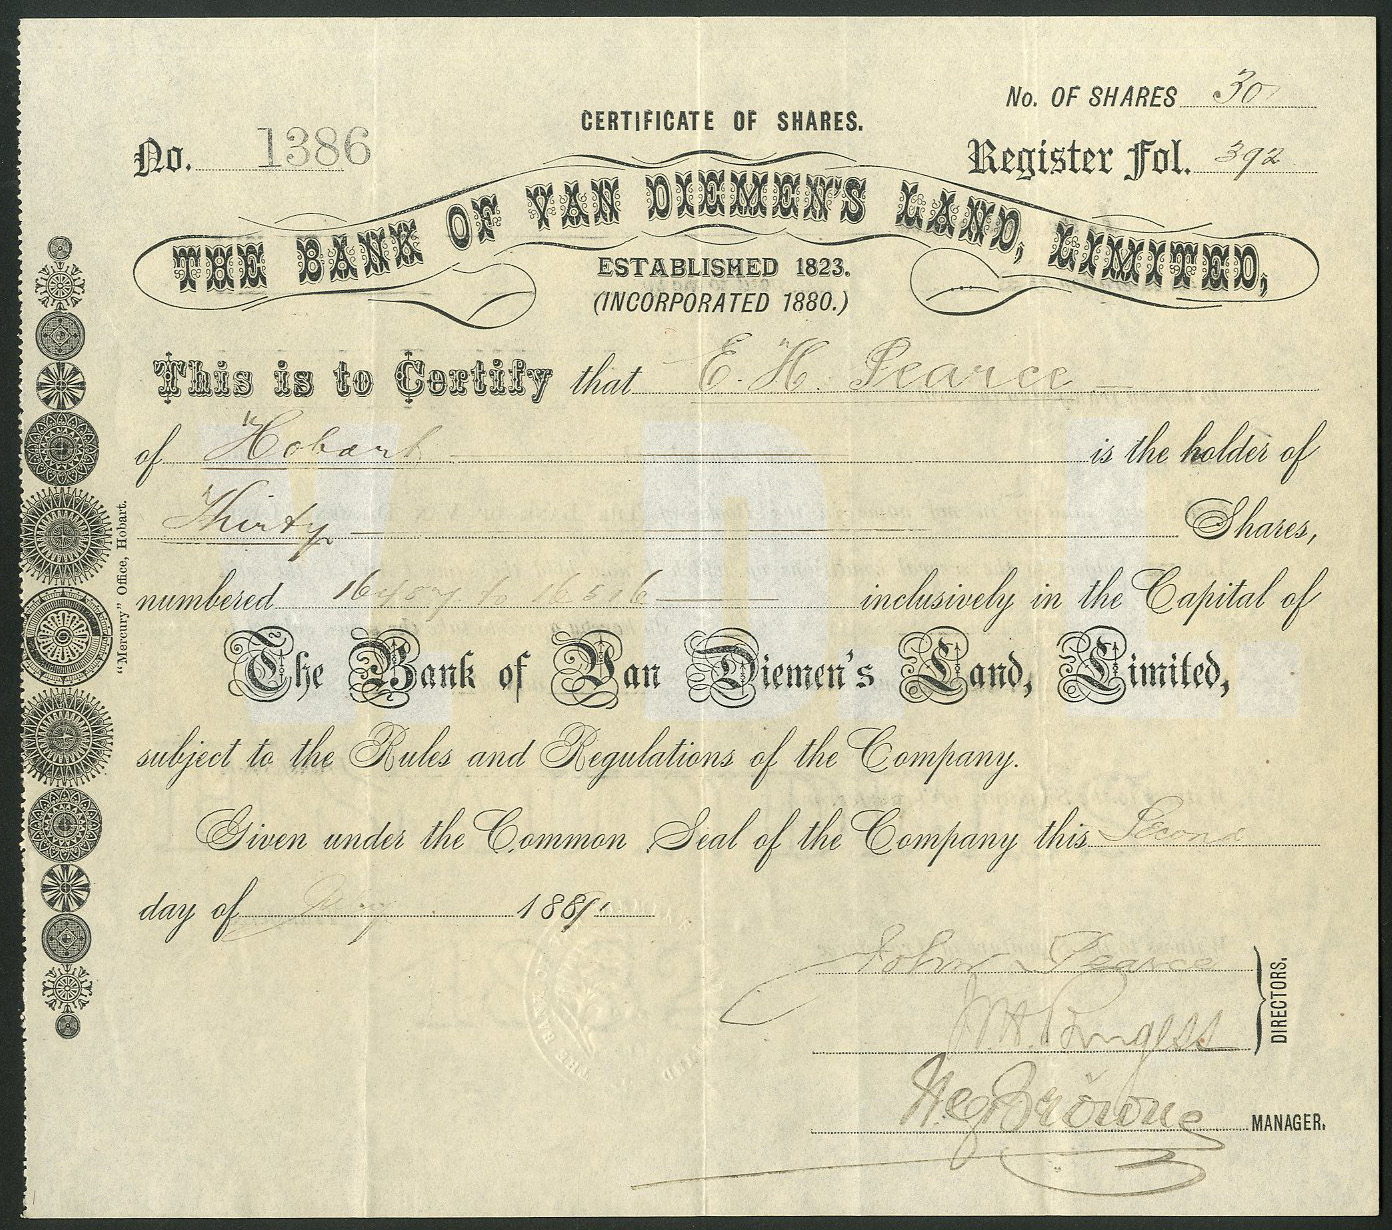 No. OF SHARES 30
CERTIFICATE OF SHARES.
No. 1386
Register Fol. 392
THE BANK OF VAN DIEMEN'S LAND, LIMITED,
ESTABLISHED 1823.
(INCORPORATED 1880.)
This is to Certify that E. H. Pearce
of Hobart is the holder of
Thirty Shares,
numbered inclusively in the Capital of
The Bank of Van Diemen's Land, Limited,
subject to the Rules and Regulations of the Company.
Given under the Common Seal of the Company this Second
day of 188
John Pearce
DIRECTORS.
MANAGER.
"Mercury" Office, Hobart.
V. D. L.